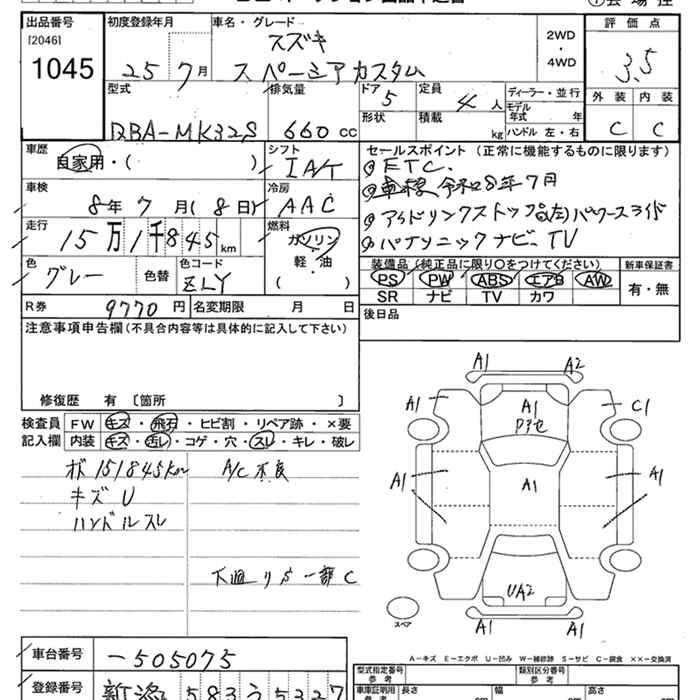 出品番号
[2046]
1045
初度登録年月
25 7月
車名・グレード
スズキ
スペーシアカスタム
2WD
・
4WD
評価点
3.5
外装 内装
C C
型式
DBA-MK32S
排気量
660 cc
ドア
5
定員
4 人
ディーラー・並行
モデル年式 年
形状
積載
kg
ハンドル 左・右
車歴
自家用・( )
シフト
IA/T
車検
8年 7月(8日)
冷房
AAC
走行
15万1千845km
燃料
ガソリン
軽・油
( )
色
グレー
色替
色コード
ZLY
セールスポイント (正常に機能するものに限ります)
◎ETC.
◎車検 令和8年7月
◎アイドリングストップ 左パワースライド
◎パナソニックナビ、TV
装備品(純正品に限り○をつけてください)
PS PW ABS エアB AW
SR ナビ TV カワ
新車保証書
有・無
R券 9770 円
名変期限 月 日
後日品
注意事項申告欄(不具合内容等は具体的に記入して下さい)
修復歴 有 〔箇所 〕
検査員記入欄
FW キズ・飛石・ヒビ割・リペア跡・×要
内装 キズ・汚レ・コゲ・穴・スレ・キレ・破レ
ボ 151845km
キズU
ハンドルスレ
A/C不良
下廻りサビ一部C
A1 A2
A1 A1 C1
Pアセ
A1 A1 A1
UA2
A1 A1
スペア
A-キズ E-エクボ U-凹み W-補修跡 S-サビ C-腐食 ××-交換済
車台番号
-505075
登録番号
583う5327
型式指定番号
参考
類別区分番号
参考
車庫証明用
長さ cm 幅 cm 高さ cm